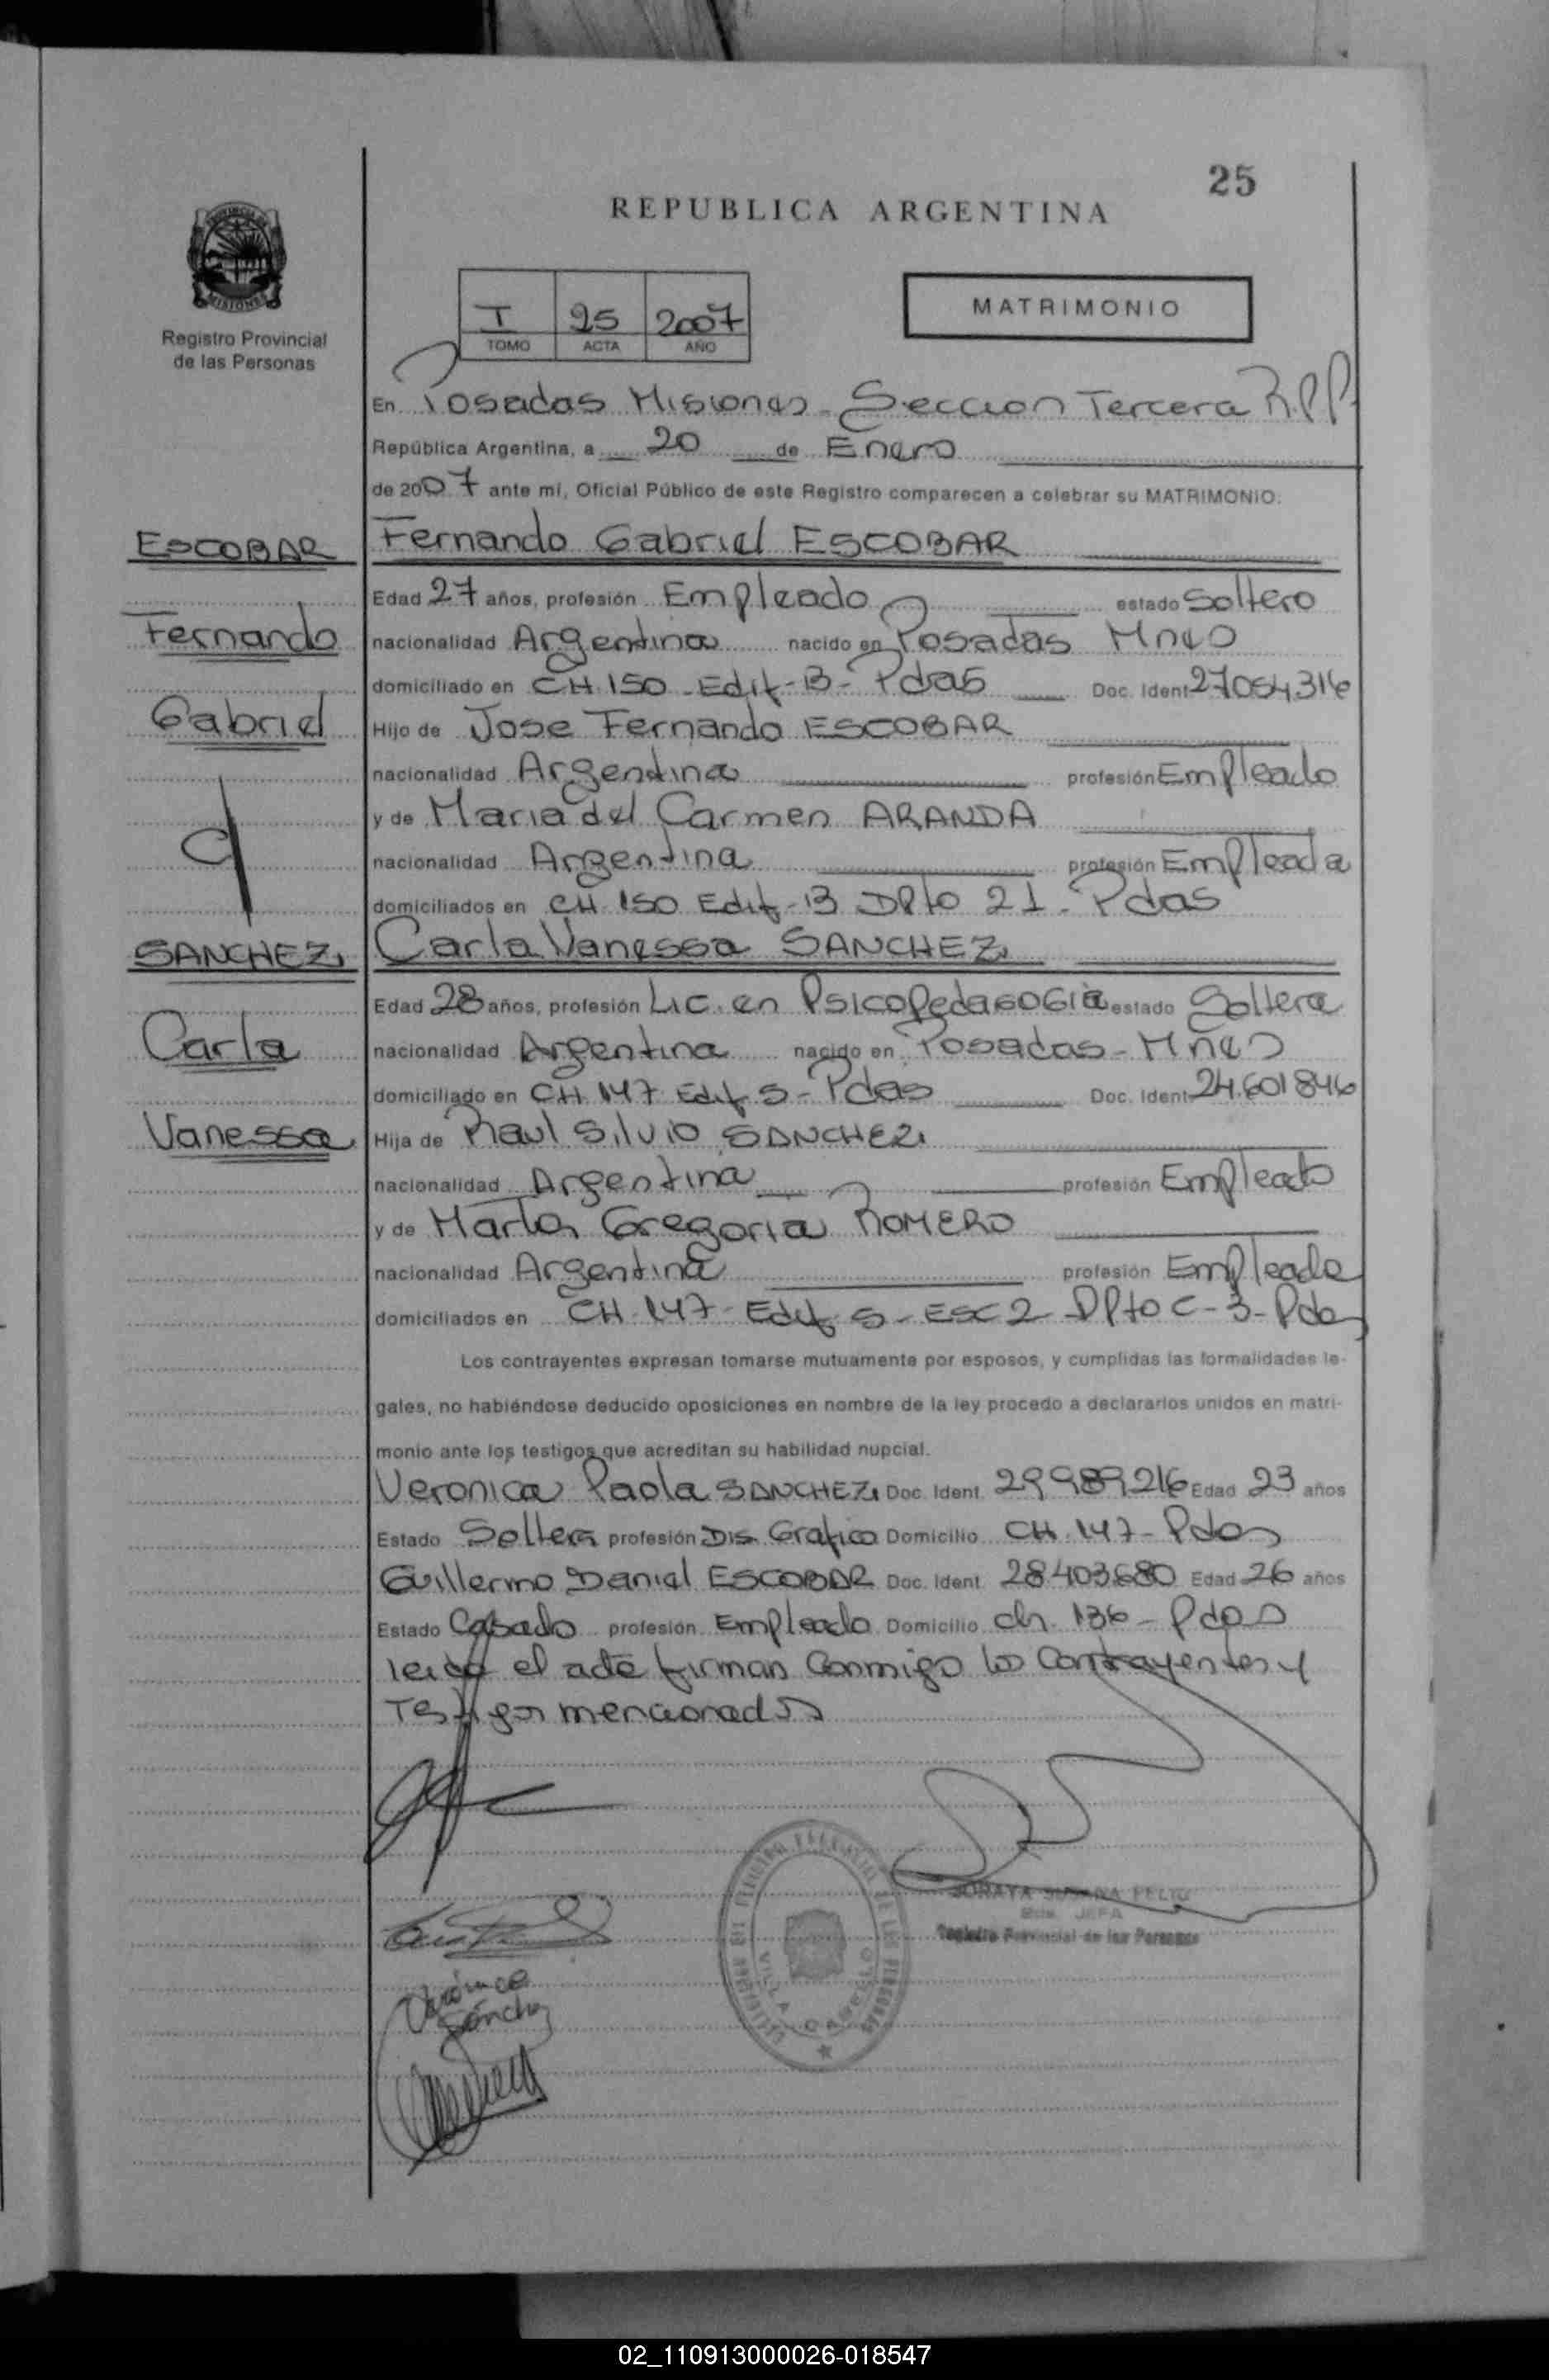 25
REPUBLICA ARGENTINA
PROVINCIA DE
MISIONES
Registro Provincial
de las Personas
I 25 2007
TOMO ACTA AÑO
MATRIMONIO
En Posadas Misiones - Seccion Tercera R.P.P.
República Argentina, a 20 de Enero
de 2007 ante mí, Oficial Público de este Registro comparecen a celebrar su MATRIMONIO:
ESCOBAR
Fernando
Gabriel
c/
SANCHEZ
Carla
Vanessa
Fernando Gabriel ESCOBAR
Edad 27 años, profesión Empleado estado Soltero
nacionalidad Argentina nacido en Posadas Mnes
domiciliado en CH 150 - Edif - B - Pdas Doc. Ident 27054316
Hijo de Jose Fernando ESCOBAR
nacionalidad Argentina profesión Empleado
y de Maria del Carmen ARANDA
nacionalidad Argentina profesión Empleada
domiciliados en CH 150 Edif - B DPto 21 - Pdas
Carla Vanessa SANCHEZ
Edad 28 años, profesión Lic. en PsicoPedaGOGia estado Soltera
nacionalidad Argentina nacido en Posadas - Mnes
domiciliado en CH 147 Edif 5 - Pdas Doc. Ident 24.601846
Hija de Raul Silvio SANCHEZ
nacionalidad Argentina profesión Empleado
y de Marta Gregoria ROMERO
nacionalidad Argentina profesión Empleada
domiciliados en CH 147 - Edif 5 - ESC 2 - DPto C - 3 - Pdas
Los contrayentes expresan tomarse mutuamente por esposos, y cumplidas las formalidades le-
gales, no habiéndose deducido oposiciones en nombre de la ley procedo a declararlos unidos en matri-
monio ante los testigos que acreditan su habilidad nupcial.
Veronica Paola SANCHEZ Doc. Ident. 29989216 Edad 23 años
Estado Soltera profesión Dis. Grafico Domicilio CH 147 - Pdas
Guillermo Daniel ESCOBAR Doc. Ident. 28403680 Edad 26 años
Estado Casado profesión Empleado Domicilio ch. 136 - Pdas
leida el acta firman conmigo los contrayentes y
Testigos mencionados
Verónica
Sánchez
SORAYA SUSANA FELIU
JEFA
Registro Provincial de las Personas
VILLA CABELLO
02_110913000026-018547